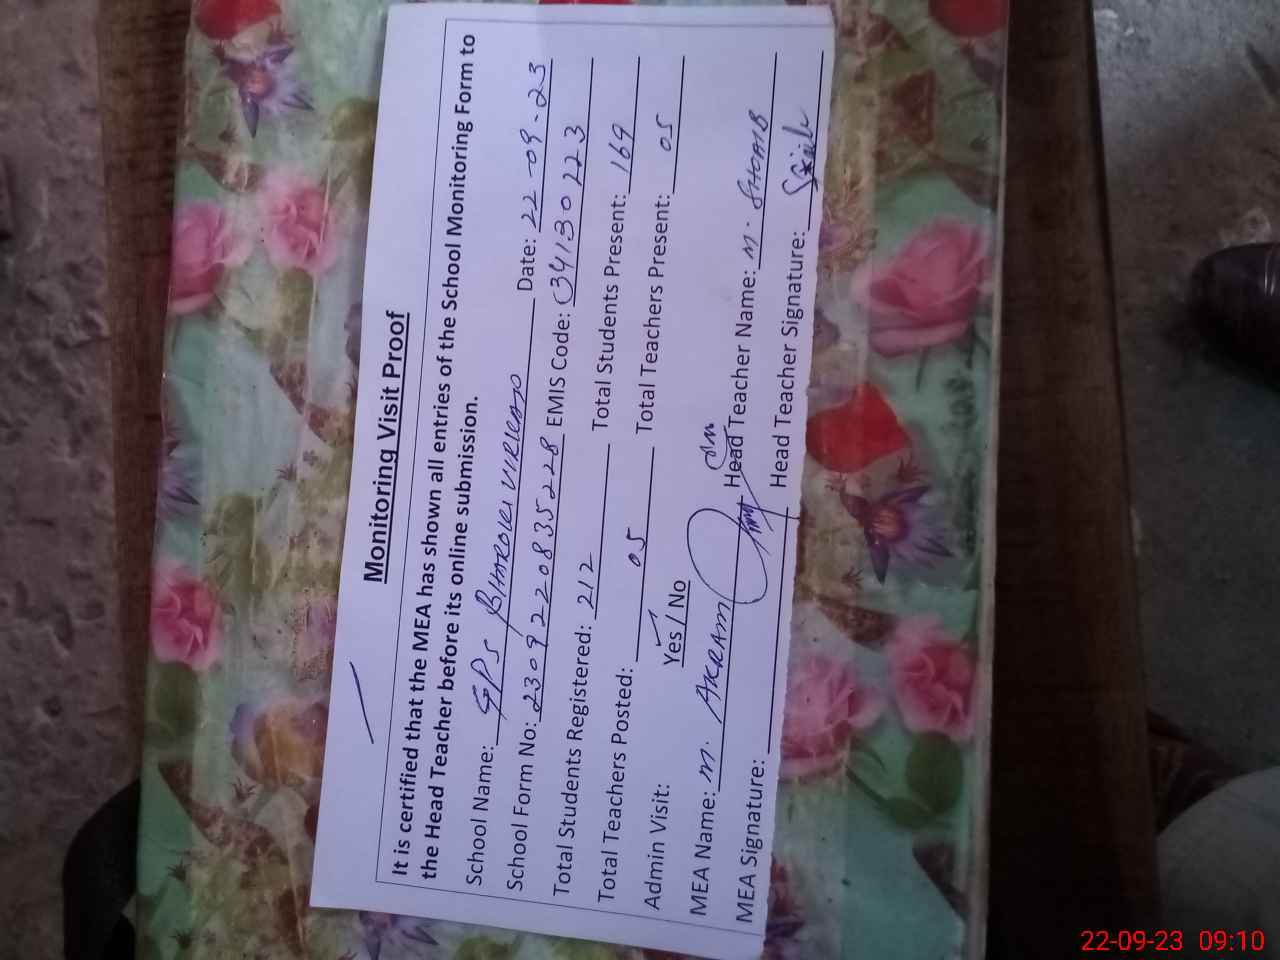 Monitoring Visit Proof
It is certified that the MEA has shown all entries of the School Monitoring Form to
the Head Teacher before its online submission.
School Name: GPS BHAROKI VIRKAN Date: 22-09-23
School Form No: 2309220835228 EMIS Code: 34130223
Total Students Registered: 212 Total Students Present: 169
Total Teachers Posted: 05 Total Teachers Present: 05
Admin Visit: Yes / No
MEA Name: M. AKRAM Head Teacher Name: M. SHOAIB
MEA Signature: Head Teacher Signature:
22-09-23 09:10